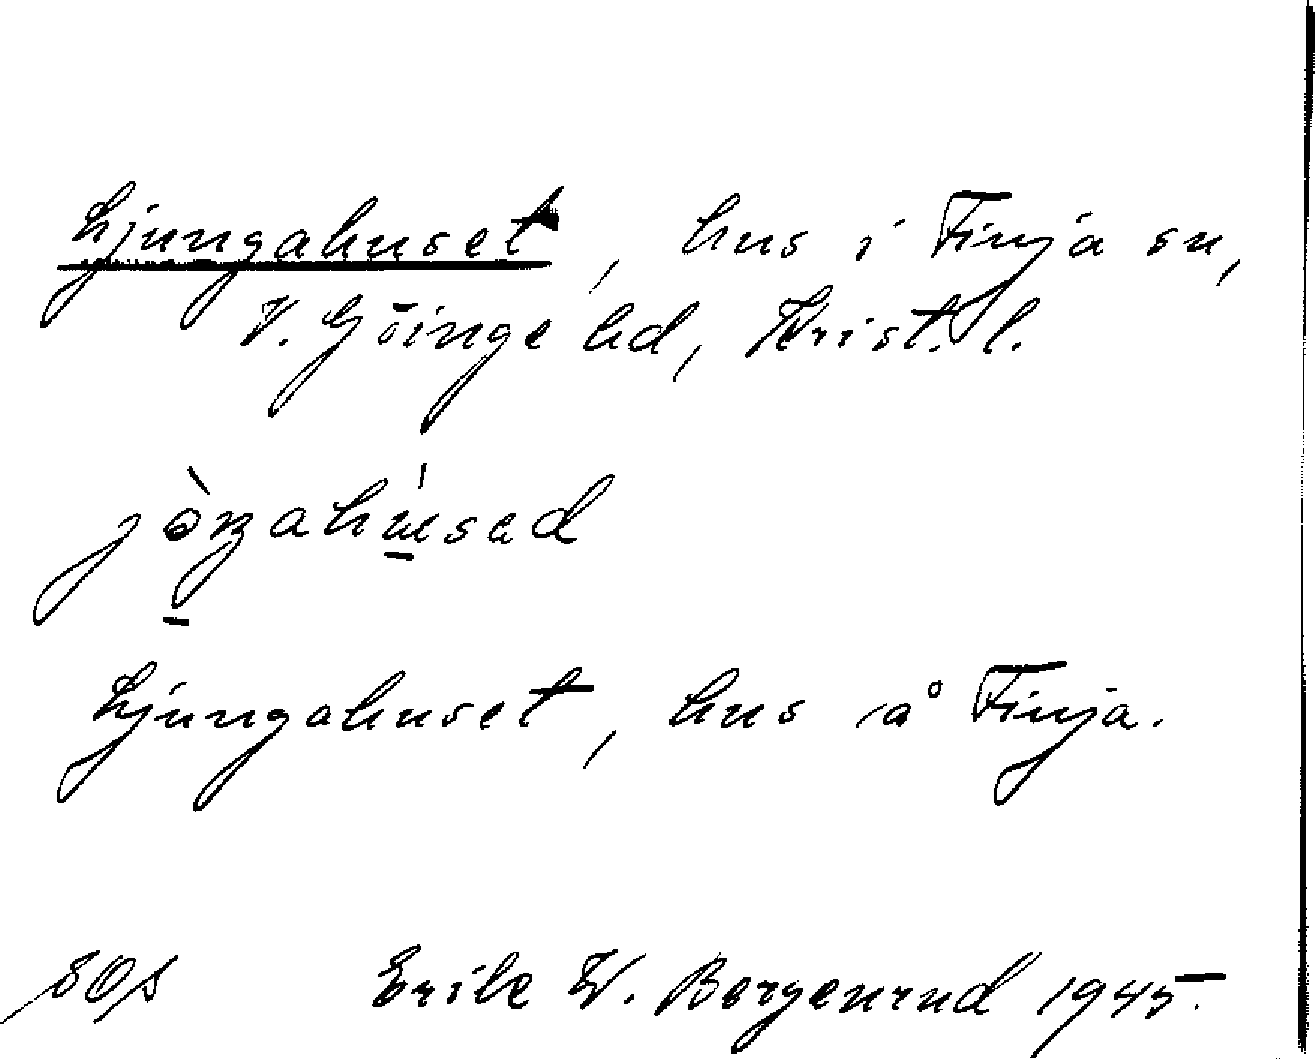 Ljungahuset, hus i Finja sn,
V. Göinge hd, Krist. l.
jòŋahu̱sad
Ljungahuset, hus i å Finja.
Erik W. Bergenrud 1945.